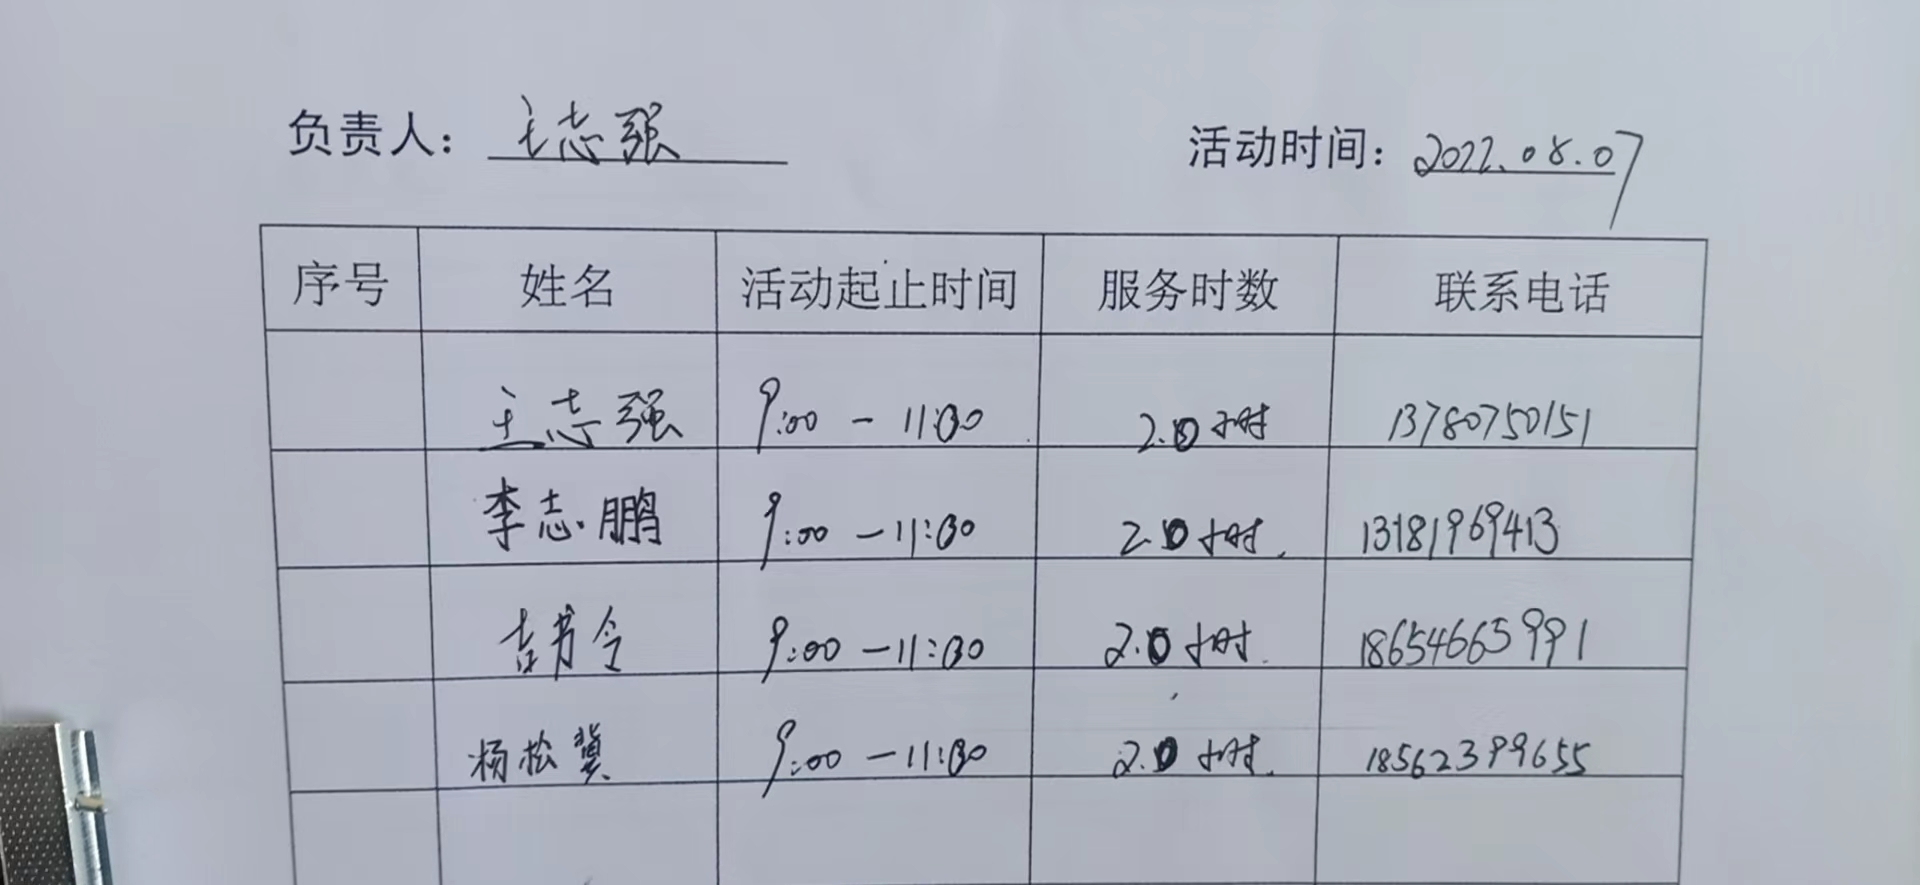 负责人： 王志强 活动时间：2022.08.07
序号 姓名 活动起止时间 服务时数 联系电话
王志强 9:00 - 11:00 2.0小时 13780750151
李志鹏 9:00 - 11:00 2.0小时. 13181969413
吉书令 9:00 - 11:00 2.0小时. 18654665991
杨松冀 9:00 - 11:00 2.0小时. 18562399655